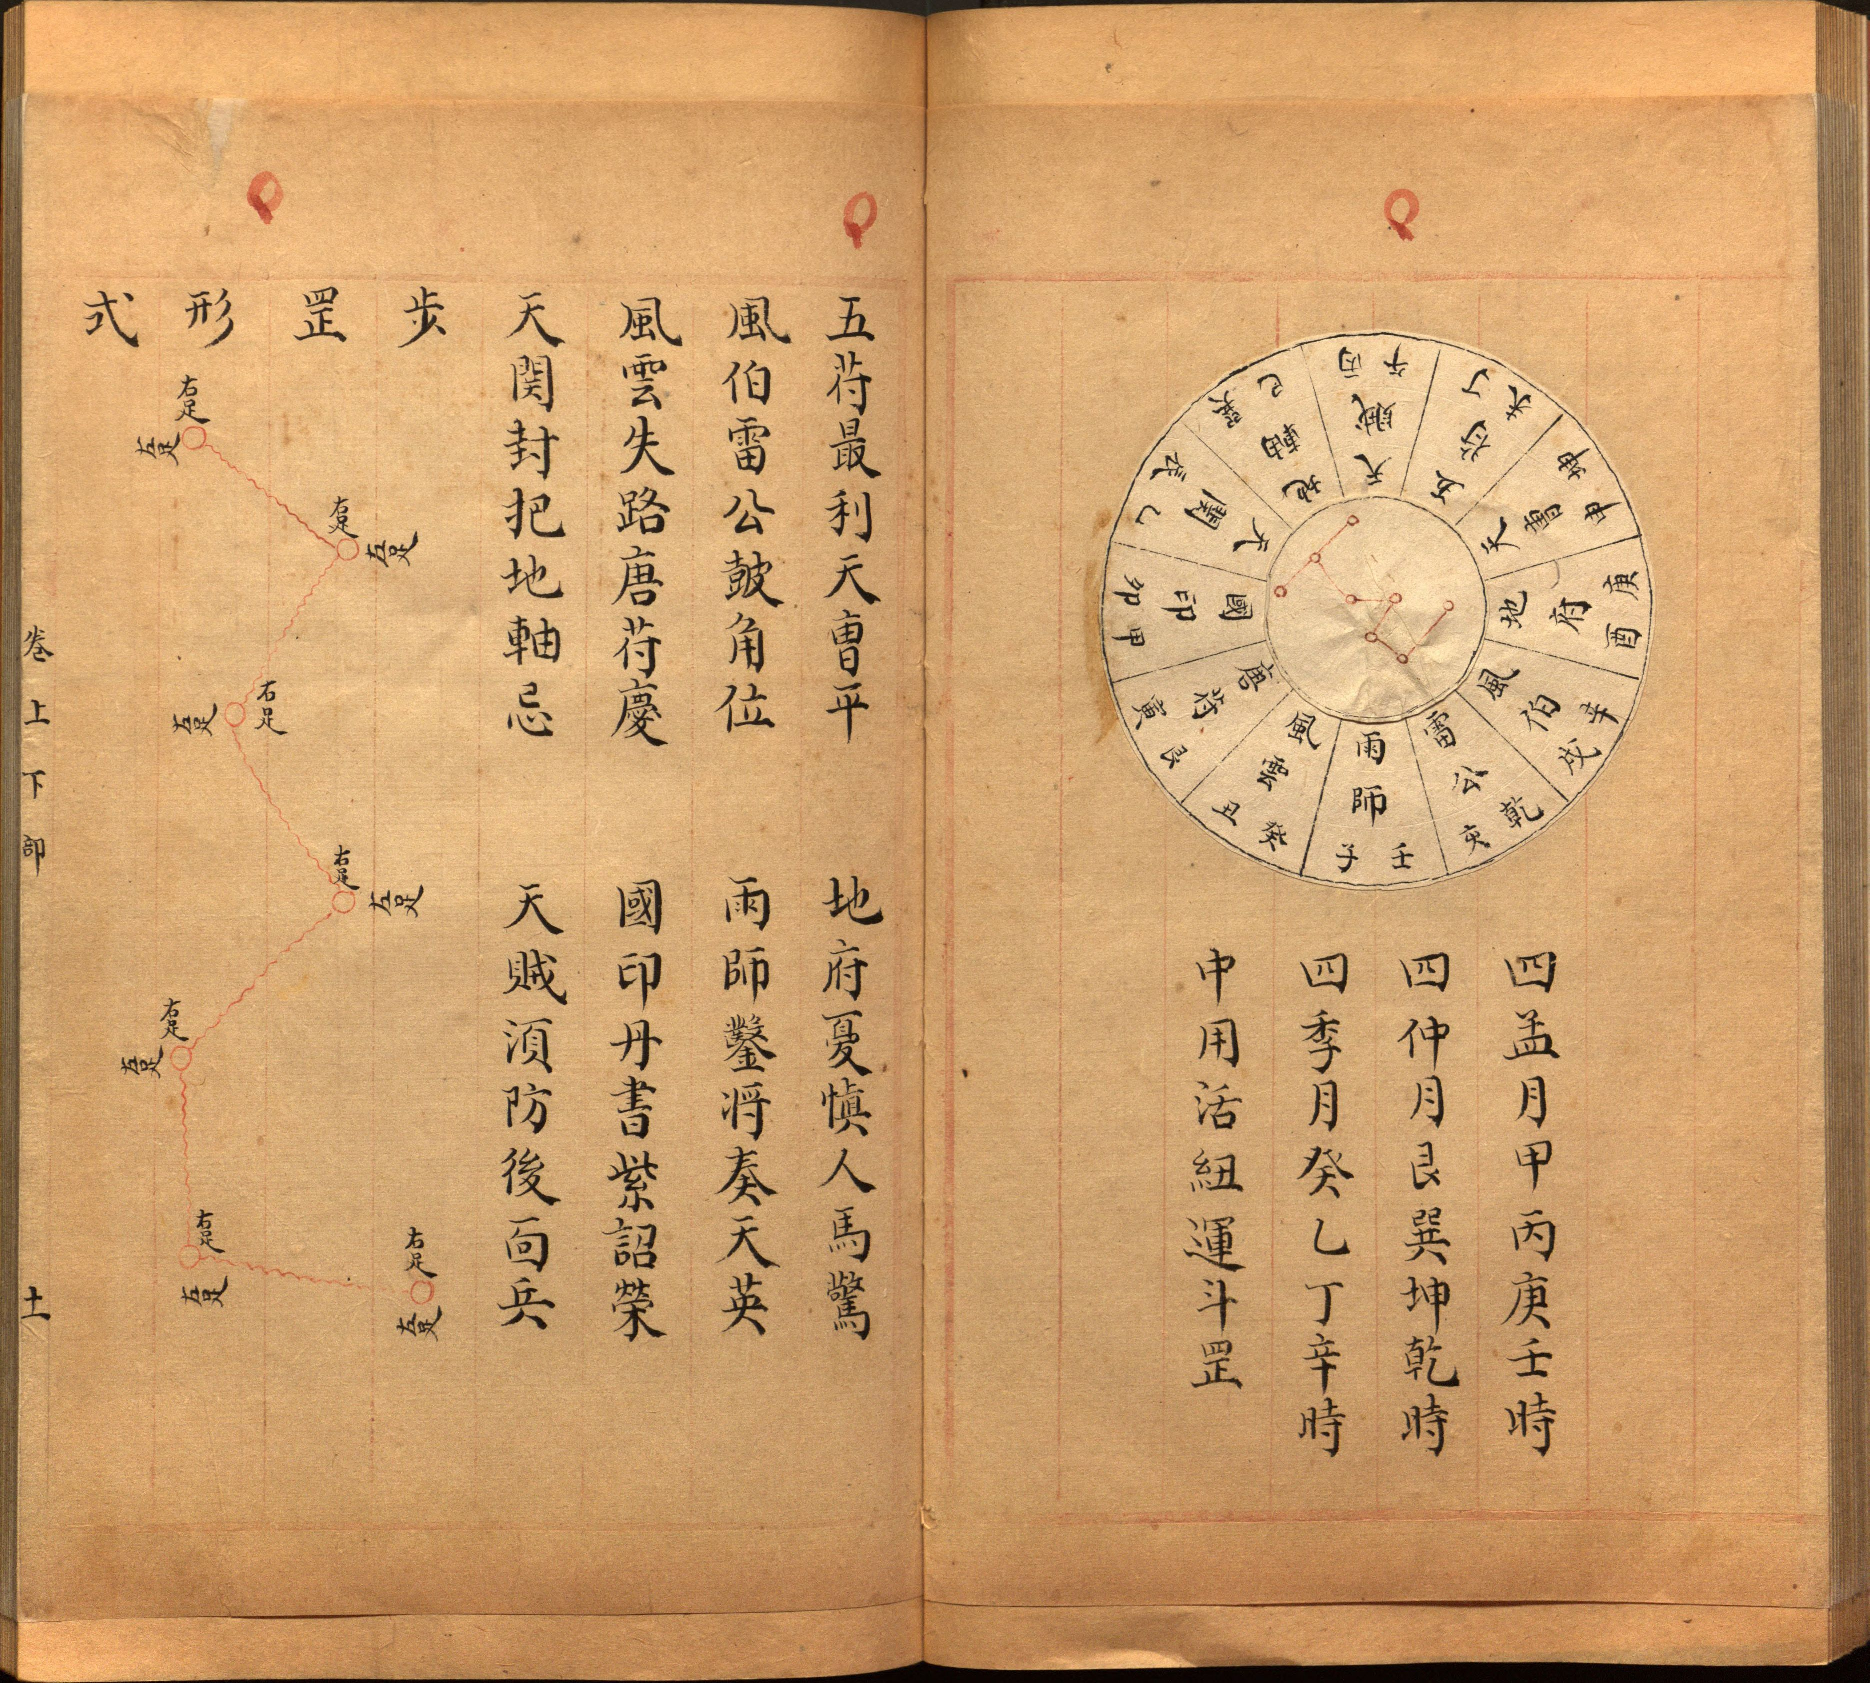 雨師 壬子
風雲 癸丑
唐苻 艮寅
國印 甲卯
天關 乙辰
地軸 巽巳
天賊 丙午
五苻 丁未
天曹 坤申
地府 庚酉
風伯 辛戌
雷公 乾亥
四孟月甲丙庚壬時
四仲月艮巽坤乾時
四季月癸乙丁辛時
中用活紐運斗罡
五苻最利天曹平 地府憂慎人馬驚
風伯雷公皷角位 雨師鑿將奏天英
風雲失路唐苻慶 國印丹書紫詔榮
天関封把地軸忌 天賊湏防後面兵
步罡形式
右足 左足
右足 左足
右足 左足
右足 左足
右足 左足
右足 左足
右足 左足
卷上下部 十一